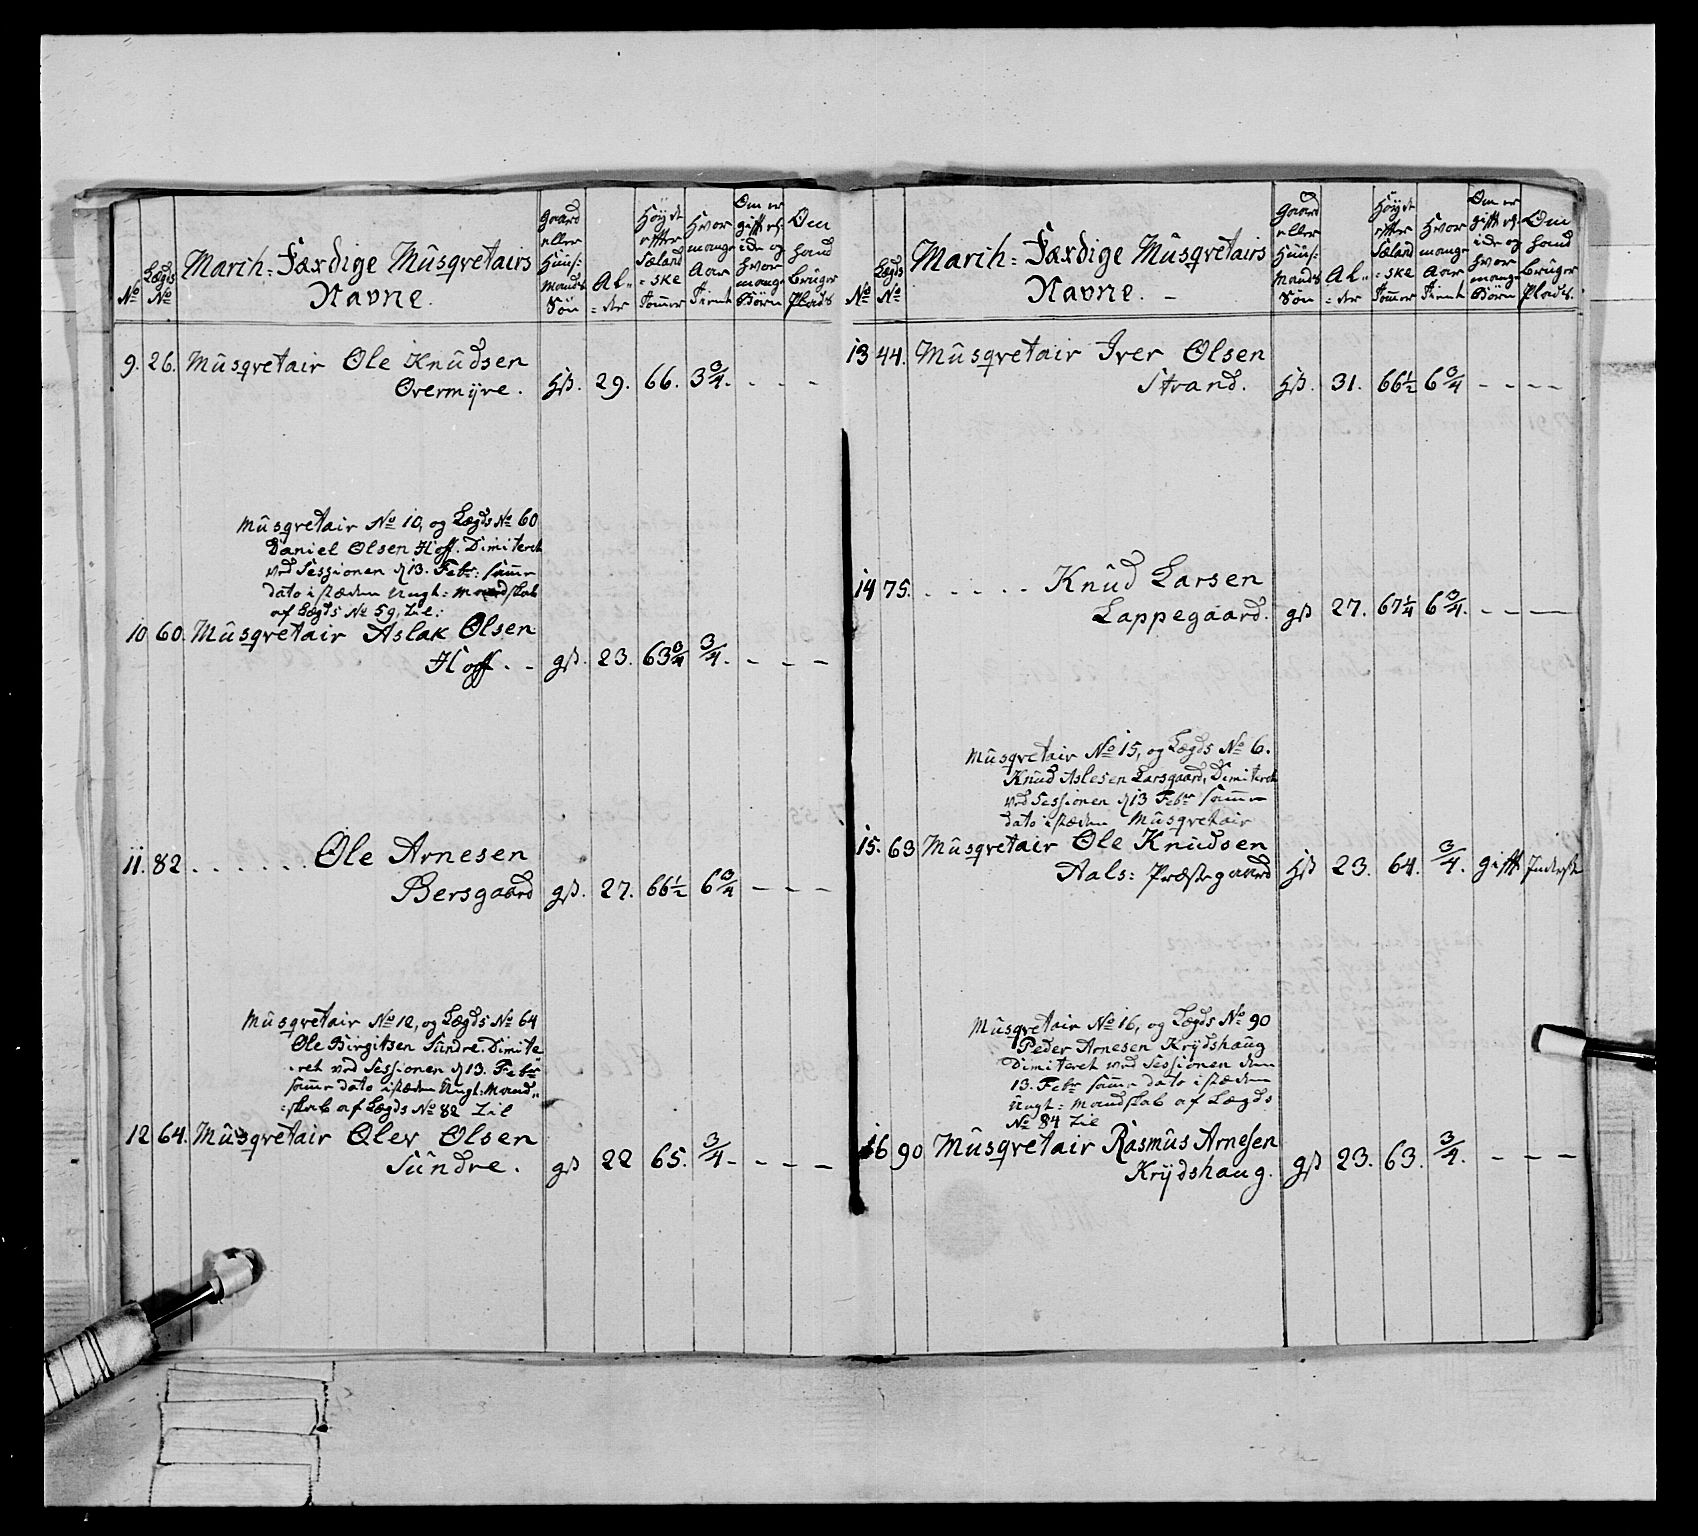 No
Lægds No
March-Færdige Musqvetairs
Navne.
Gaard eller Huus: Mands Søn
Al- der
Høyde efter Sælandske Tommer
Hvor mange Aar Tient
Om er gift eller ide og hvor mange Børn
Om hand bruger Plads
9. 26. Musqvetair Ole Knudsen
Overmÿre. Hß. 29. 66. 3 3/4. - - -
Musqvetair No 10, og Lægds No 60
Daniel Olsen Hoff. Dimiteret
ved Sessionen d 13. Febr: samme
dato i stæden Ungt: Mandskab
af Lægds No 59, Zil:
10 60. Musqvetair Aslak Olsen
Hoff. - gß. 23. 63 3/4 3/4. - - -
11. 82 . . . . . . Ole Arnesen
Bersgaard gß. 27. 66 1/2 6 3/4 - - -
Musqvetair No 12, og Lægds No 64
Ole Birgitsen Sundre. Dimite
-ret ved Sessionen d 13. Febr
samme dato i stæden Ungt: Mand„
:skab af Lægds No 82 Zil
12 64. Musqvetair Olev Olsen
Sundre. gß 22 65. 3/4 - - - -
No
Lægds No
March-Færdige Musqvetairs
Navne. -
Gaard eller Huus: Mands Søn
Al„ = der
Høyde efter Sæland =ske Tommer
Hvor mange Aar Tient
Om er gift eller ide og hvor mange Børn
Om hand bruger Plads.
13 44. Musqvetair Iver Olsen
Strand. Hß. 31. 66 1/2 6 3/4 - - - -
14 75. . . . . . Knud Larsen
Lappegaard. gß 27. 67 1/4 6 3/4. - - -
Musqvetair No 15, og Lægds No 6.
Knud Aslesen Larsgaard, Dimiteret
ved Sessionen d 13 Febr samme
dato i stæden Musqvetair
15. 63 Musqvetair Ole Knudsen
Aals: Præstegaard Hß 23. 64. 3/4. gift Inderste
Musqvetair No 16, og Lægds No 90
Peder Arnesen Krÿdshaug
Dimiteret ved Sessionen den
13. Febr samme dato i stæden
Ungt: Mandskab af Lægds
No 84 Zil
16 90 Musqvetair Rasmus Arnesen
Krÿdshaug. gß 23. 63. 3/4. - - -